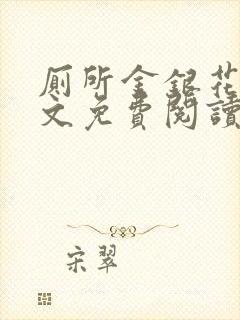 厕所金银花
文免费阅读
宋翠